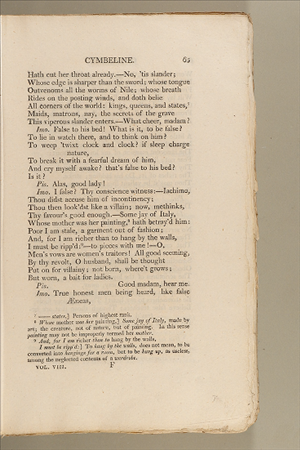 CYMBELINE. 63
Hath cut her throat already.—No, 'tis slander;
Whose edge is sharper than the sword; whose tongue
Outvenoms all the worms of Nile; whose breath
Rides on the posting winds, and doth belie
All corners of the world: kings, queens, and states,⁷
Maids, matrons, nay, the secrets of the grave
This viperous slander enters.—What cheer, madam?
Imo. False to his bed! What is it, to be false?
To lie in watch there, and to think on him?
To weep 'twixt clock and clock? if sleep charge
nature,
To break it with a fearful dream of him,
And cry myself awake? that's false to his bed?
Is it?
Pis. Alas, good lady!
Imo. I false? Thy conscience witness:—Iachimo,
Thou didst accuse him of incontinency;
Thou then look'dst like a villain; now, methinks,
Thy favour's good enough.—Some jay of Italy,
Whose mother was her painting,⁸ hath betray'd him:
Poor I am stale, a garment out of fashion;
And, for I am richer than to hang by the walls,
I must be ripp'd:⁹—to pieces with me!—O,
Men's vows are women's traitors! All good seeming,
By thy revolt, O husband, shall be thought
Put on for villainy; not born, where't grows;
But worn, a bait for ladies.
Pis. Good madam, hear me.
Imo. True honest men being heard, like false
Æneas,
⁷ —— states,] Persons of highest rank.
⁸ Whose mother was her painting,] Some jay of Italy, made by
art; the creature, not of nature, but of painting. In this sense
painting may not be improperly termed her mother.
⁹ And, for I am richer than to hang by the walls,
I must be ripp'd:] To hang by the walls, does not mean, to be
converted into hangings for a room, but to be hung up, as useless,
among the neglected contents of a wardrobe.
VOL. VIII. F